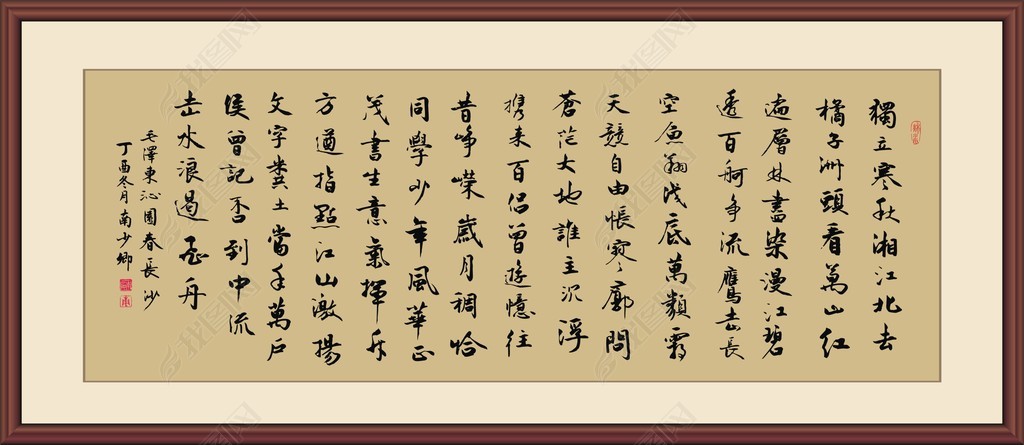 獨立寒秋湘江北去
橘子洲頭看萬山红
遍層林盡染漫江碧
透百舸争流鷹击長
空鱼翔浅底萬類霜
天競自由悵寥廓問
蒼茫大地誰主沉浮
携来百侣曾遊憶往
昔峥嵘歲月稠恰
同學少年風華正
茂書生意氣揮斥
方遒指點江山激揚
文字糞土當年萬户
侯曾記否到中流
击水浪遏飛舟
毛澤東沁園春長沙
丁酉冬月南少卿